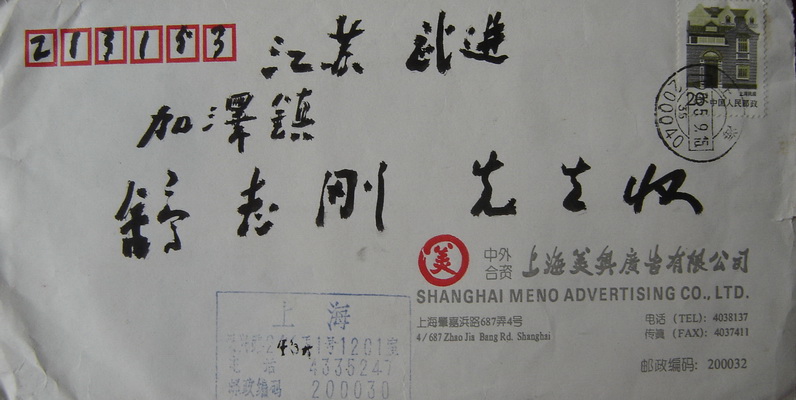 213153
江苏 武进
加澤鎮
舒 志 刚 先生收
20 中国人民邮政
上海民居
200040
美
中外合资 上海美奥廣告有限公司
SHANGHAI MENO ADVERTISING CO., LTD.
上海肇嘉浜路687弄4号 电话 (TEL): 4038137
4/687 Zhao Jia Bang Rd. Shanghai 传真 (FAX): 4037411
邮政编码: 200032
上 海
1号1201室
电 话 4335247
邮政编码 200030